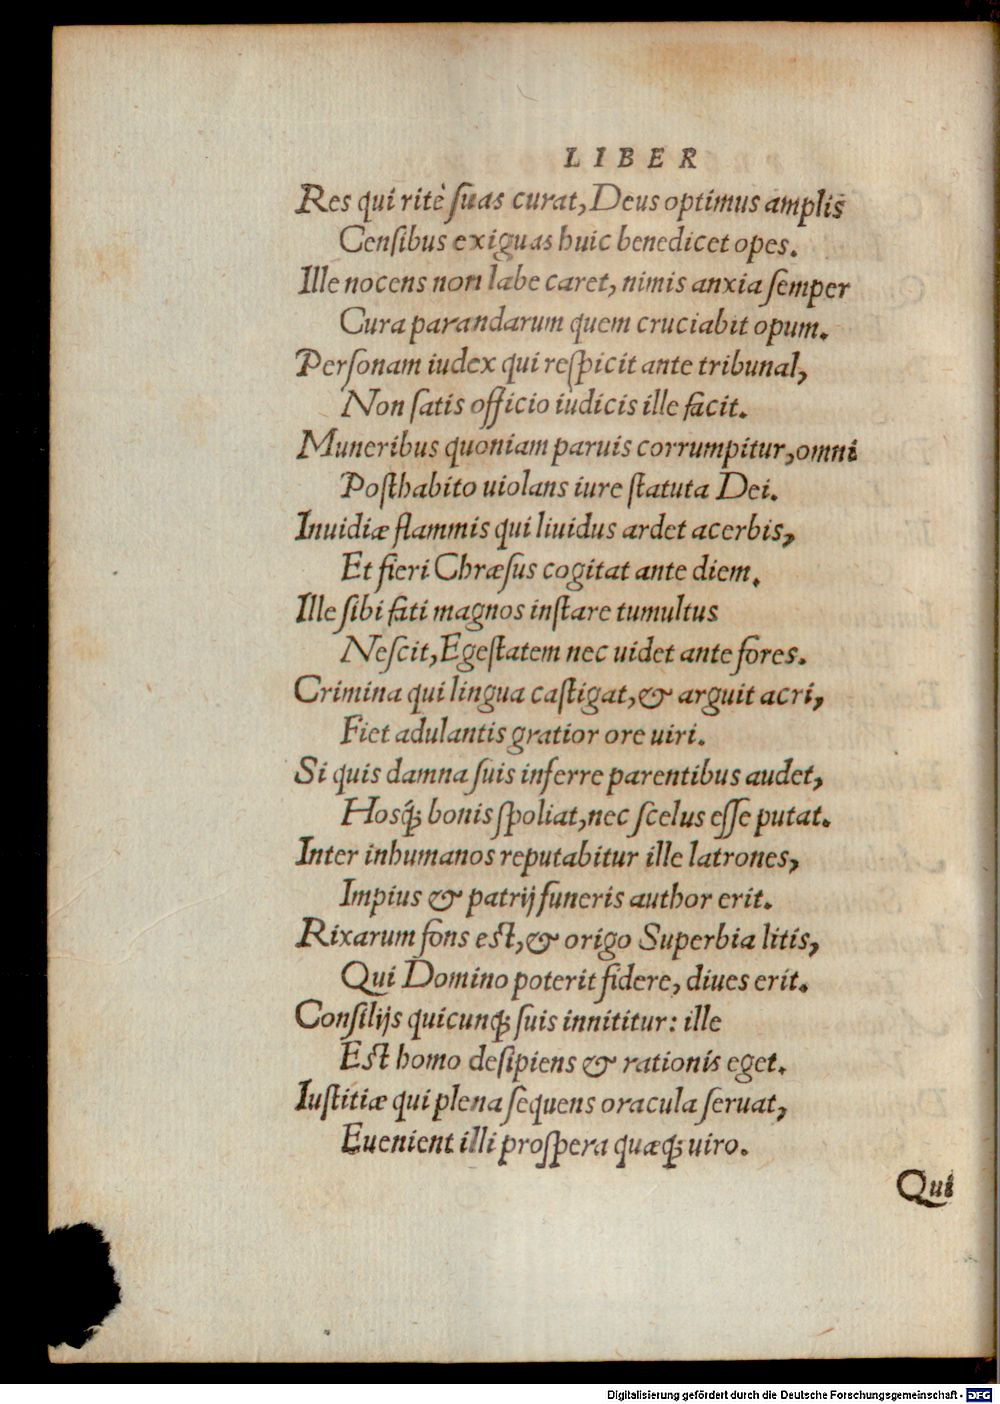 LIBER
Res qui ritè ſuas curat, Deus optimus amplis
Cenſibus exiguas huic benedicet opes.
Ille nocens non labe caret, nimis anxia ſemper
Cura parandarum quem cruciabit opum.
Perſonam iudex qui reſpicit ante tribunal,
Non ſatis officio iudicis ille facit.
Muneribus quoniam paruis corrumpitur, omni
Poſthabito uiolans iure ſtatuta Dei.
Inuidiæ flammis qui liuidus ardet acerbis,
Et fieri Chræſus cogitat ante diem.
Ille ſibi fati magnos inſtare tumultus
Neſcit, Egeſtatem nec uidet ante fores.
Crimina qui lingua caſtigat, & arguit acri,
Fiet adulantis gratior ore uiri.
Si quis damna ſuis inferre parentibus audet,
Hosq́; bonis ſpoliat, nec ſcelus eſſe putat.
Inter inhumanos reputabitur ille latrones,
Impius & patrij funeris author erit.
Rixarum fons eſt, & origo Superbia litis,
Qui Domino poterit fidere, diues erit.
Conſilijs quicunq́; ſuis innititur: ille
Eſt homo deſipiens & rationis eget.
Iuſtitiæ qui plena ſequens oracula ſeruat,
Euenient illi proſpera quæq́; uiro.
Qui
Digitalisierung gefördert durch die Deutsche Forschungsgemeinschaft - DFG